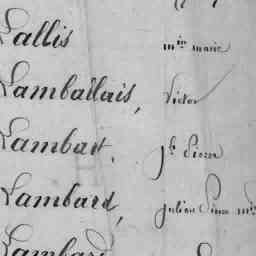 Lallis min marie
Lamballais, Victor
Lambart, jh Pierre
Lambard, Julien Pierre
Lambard